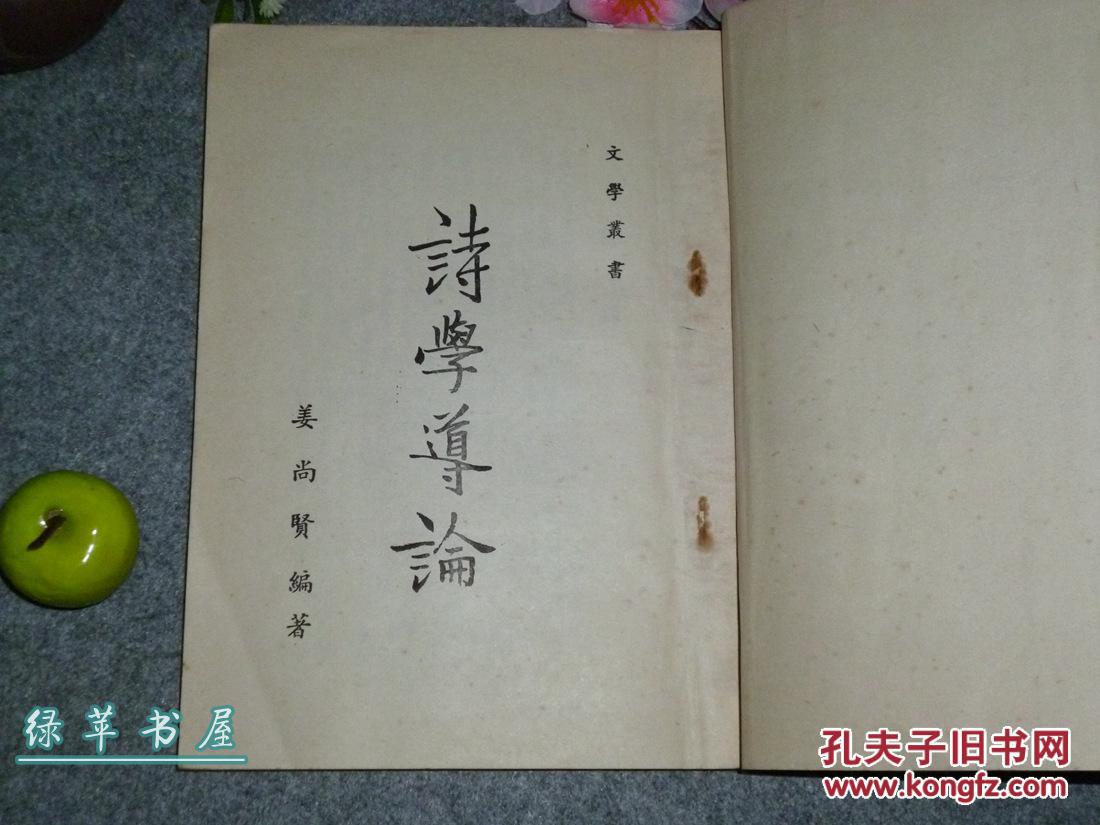 文學叢書
詩學導論
姜尚賢編著
绿苹书屋
孔夫子旧书网
www.kongfz.com